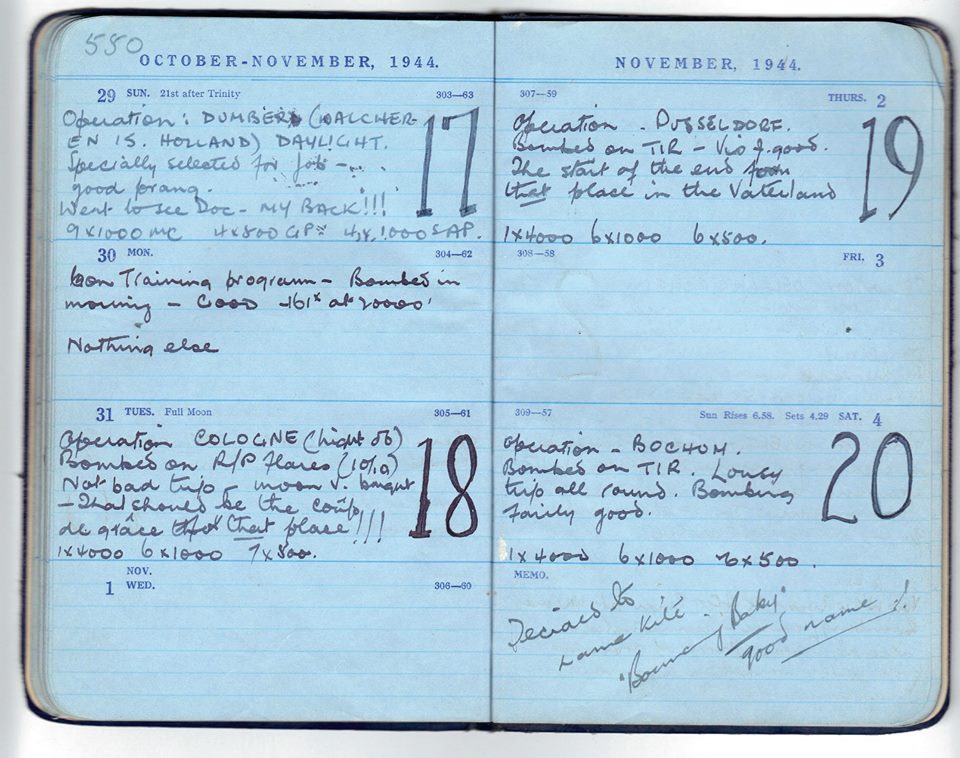 550
OCTOBER-NOVEMBER, 1944.
29 SUN. 21st after Trinity 303—63
Operation: DOMBERG (WALCHER-
EN IS. HOLLAND) DAYLIGHT.
Specially selected for job - ...
good prang.
Went to see Doc - MY BACK!!!
9x1000 MC 4x500 GP 1000 SAP.
17
30 MON. 304—62
on Training program - Bombed in
morning - GOOD - 161x at 20000'
Nothing else
31 TUES. Full Moon 305—61
Operation COLOGNE (Night Ob)
Bombed on R/P flares (10/10)
Not bad trip - moon v. bright
- That should be the coup
de grâce that place!!!
1x4000 6x1000 7x500.
18
NOV.
1 WED. 306—60
NOVEMBER, 1944.
307—59 THURS. 2
Operation - DUSSELDORF.
Bombed on TIR - Vis f. good.
The start of the end for
that place in the Vaterland
1x4000 6x1000 6x500.
19
308—58 FRI. 3
309—57 Sun Rises 6.58. Sets 4.29 SAT. 4
Operation - BOCHUM.
Bombed on TIR. Lousy
trip all round. Bombing
fairly good.
1x4000 6x1000 6x500.
20
MEMO.
Decided to
name kite -
"Bouncing Baby"
good name!